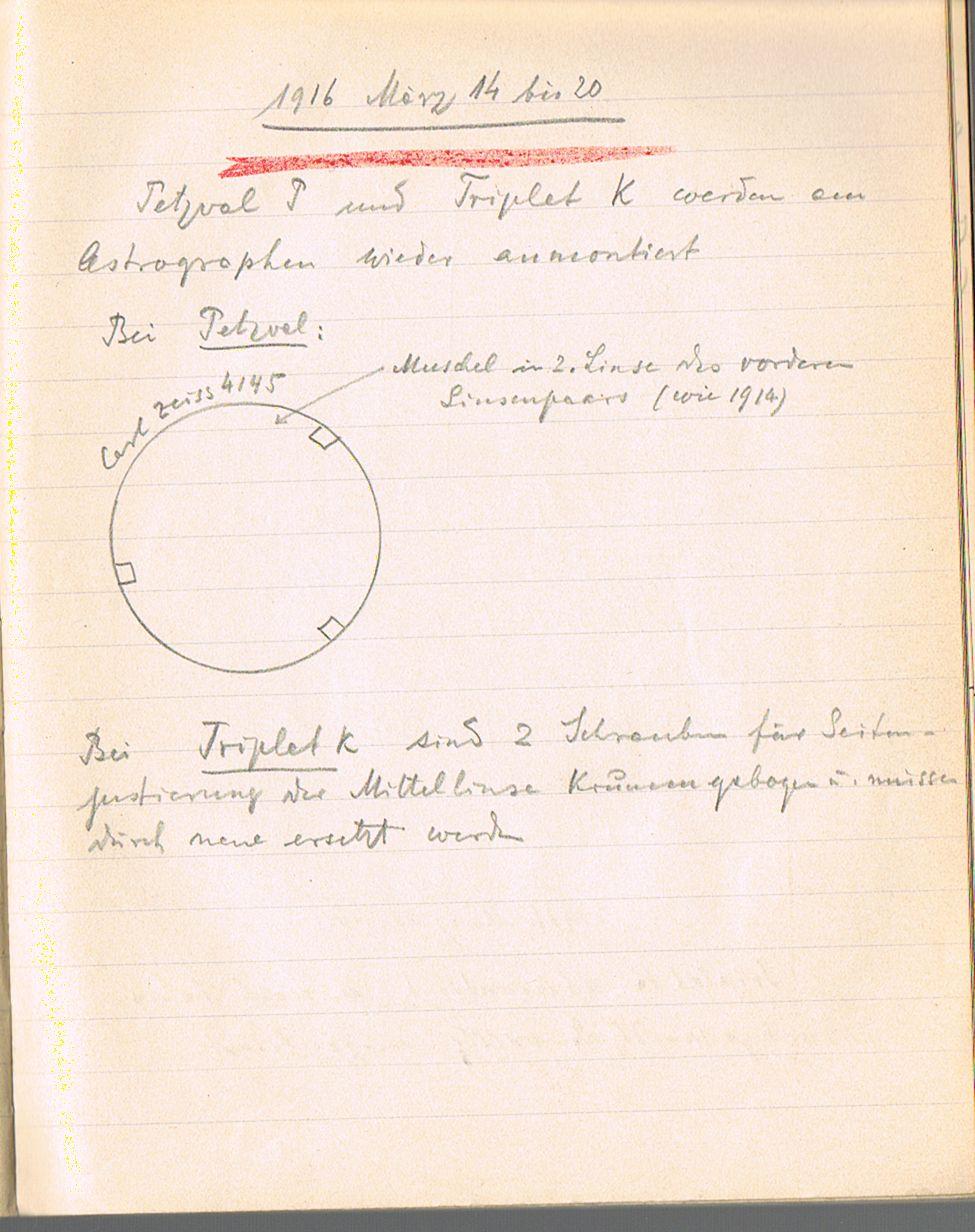 1916 März 14 bis 20
Petzval P und Triplet K werden am
Astrographen wieder anmontiert
Bei Petzval:
Muschel in 2. Linse des vorderen
Linsenpaars (wie 1914)
Carl Zeiss 4145
Bei Triplet K sind 2 Schrauben für Seiten-
justierung der Mittellinse krumm gebogen u. müssen
durch neue ersetzt werden